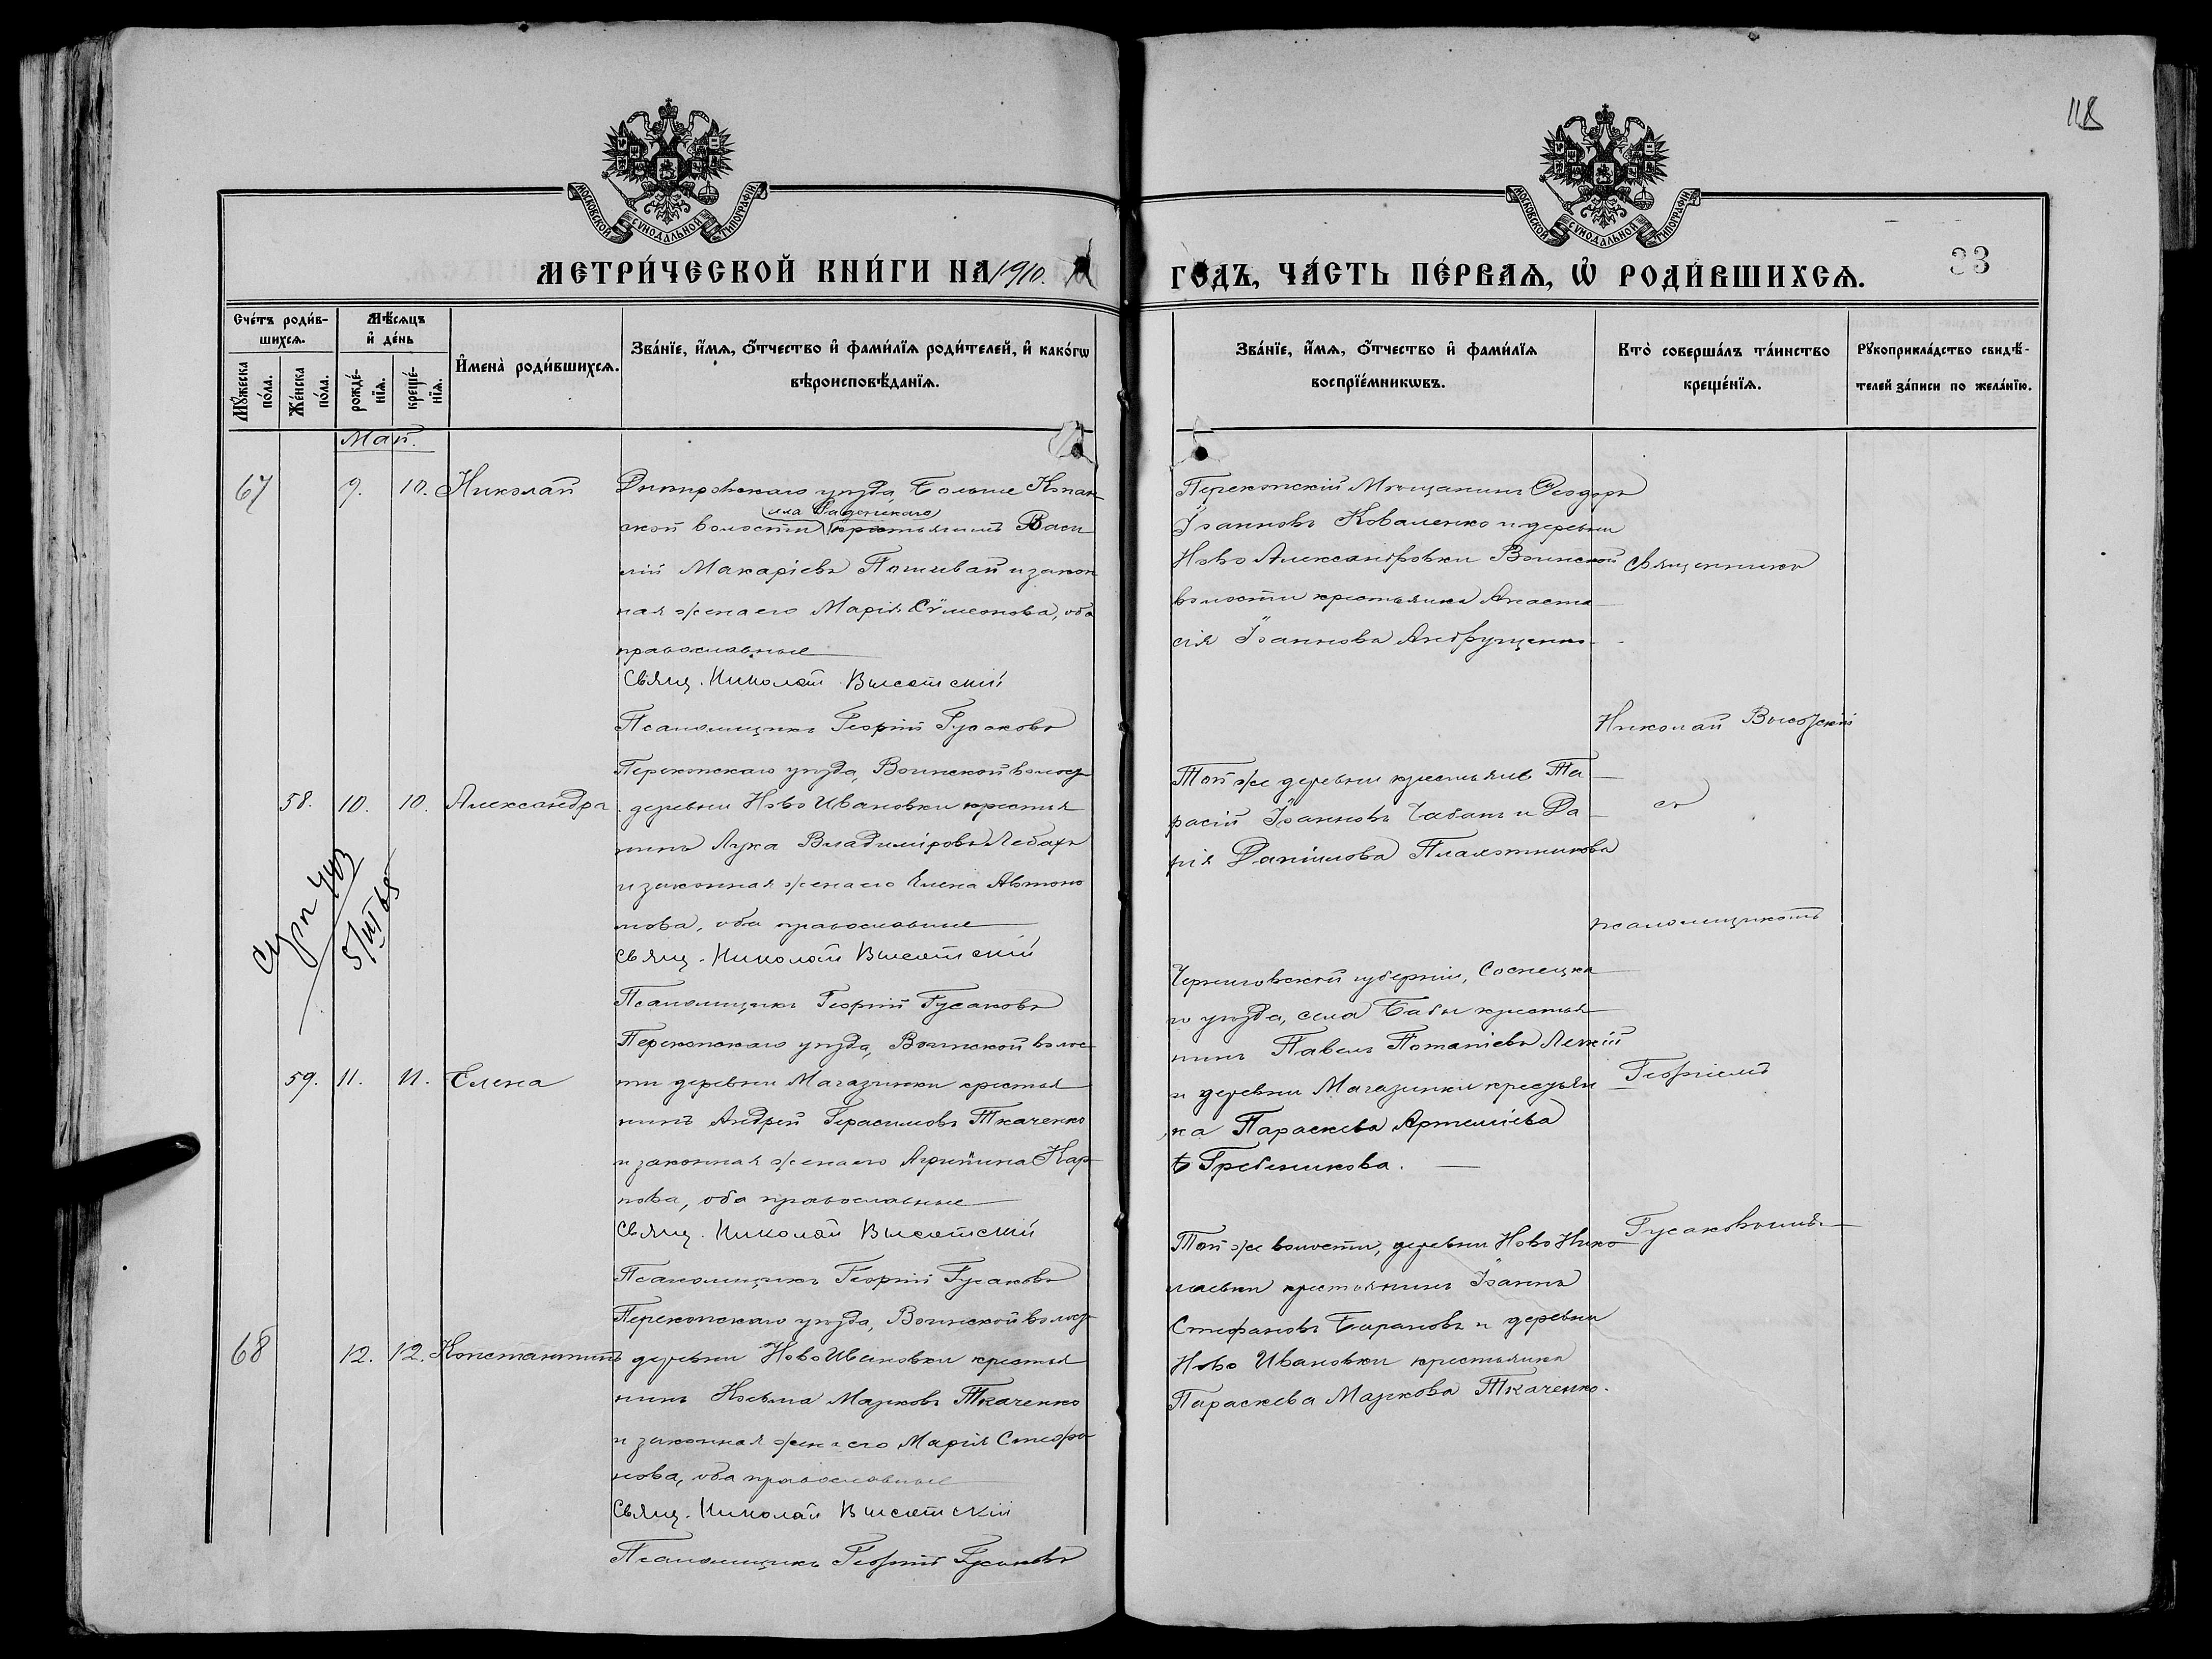 118
МОСКОВСКОЙ СѴНОДАЛЬНОЙ ТИПОГРАФІИ
МОСКОВСКОЙ СѴНОДАЛЬНОЙ ТИПОГРАФІИ
МЕТРИ́ЧЕСКОЙ КНИ́ГИ НА 1910.
ГО́ДЪ, ЧА́СТЬ ПЕ́РВАѦ, Ѡ҆ РОДИ́ВШИХСѦ.
33
Сче́тъ роди́в-
шихсѧ.
Мꙋ́жеска по́ла.
Же́нска по́ла.
Мѣ́сѧцъ
и҆ де́нь
рожде́-
нїѧ.
креще́-
нїѧ.
И҆мена̀ роди́вшихсѧ.
Зва́нїе, и҆́мѧ, ѻ҆́тчество и҆ фами́лїѧ роди́телей, и҆ како́гѡ
вѣроисповѣ́данїѧ.
Зва́нїе, и҆́мѧ, ѻ҆́тчество и҆ фами́лїѧ
воспрїе́мникѡвъ.
Кто̀ соверша́лъ та́инство
креще́нїѧ.
Рꙋкоприкла́дство свидѣ́-
телей за́писи по жела́нїю.
Май.
67
9.
10.
Николай
Днѣпровскаго уѣзда, Больше Копан-
ской волости крестьянинъ Васи
лій Макаріевъ Пошивай и закон
ная жена его Марія Сѵмеонова, оба
православные
Свящ. Николай Высотскій
Псаломщикъ Георгій Гусаковъ
Перекопскій Мѣщанинъ Ѳеодоръ
Іоанновъ Коваленко и деревни
Ново Александровки Воинской
волости крестьянка Анаста
сія Іоаннова Андрущенко
Священникъ
Николай Высотскій
58.
10.
10.
Александра
Перекопскаго уѣзда, Воинской волост
деревни Ново Ивановки крестья
нинъ Лука Владиміровъ Лебарь
и законная жена его Елена Автоно
мова, оба православные
Свящ. Николай Высотскій
Псаломщикъ Георгій Гусаковъ
Той же деревни крестьяне Та
расій Іоанновъ Чабанъ и Да
рія Даніилова Плахотникова
съ
псаломщикомъ
5/III 65
59.
11.
11.
Елена
Перекопскаго уѣзда, Воинской волос
ти деревни Магазинки крестья
нинъ Андрей Герасимовъ Ткаченко
и законная жена его Агрипина Кар
пова, оба православные
Свящ. Николай Высотскій
Псаломщикъ Георгій Гусаковъ
Черниговской губерніи, Сосницка
го уѣзда, села Бабы крестья
нинъ Павелъ Потапіевъ Легкій
и деревни Магазинки крестьян
ка Параскева Артеміева
Гребеникова.
Георгіемъ
Гусаковымъ
68
12.
12.
Константинъ
Перекопскаго уѣзда, Воинской волост
деревни Ново Ивановки крестья
нинъ Косьма Марковъ Ткаченко
и законная жена его Марія Стефа
нова, оба православные
Свящ. Николай Высотскій
Псаломщикъ Георгій Гусаковъ
Той же волости, деревни Ново Нико
лаевки крестьянинъ Іоаннъ
Стефановъ Барановъ и деревни
Ново Ивановки крестьянка
Параскева Маркова Ткаченко.